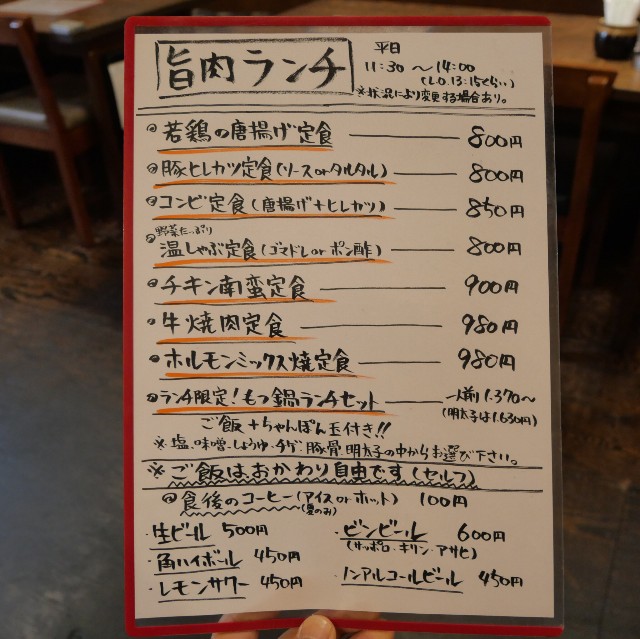 旨肉ランチ
平日
11:30 〜14:00
(L.O.13:15くらい)
※状況により変更する場合あり。
若鶏の唐揚げ定食 800円
豚ヒレカツ定食(ソースorタルタル) 800円
コンビ定食(唐揚げ+ヒレカツ) 850円
野菜たっぷり
温しゃぶ定食(ゴマドレorポン酢) 800円
チキン南蛮定食 900円
牛焼肉定食 980円
ホルモンミックス焼定食 980円
ランチ限定!もつ鍋ランチセット 一人前1.370〜
ご飯+ちゃんぽん玉付き!! (明太子は1.630円)
※塩、味噌、しょうゆ、チゲ、豚骨、明太子の中からお選び下さい。
※ご飯は、おかわり自由です(セルフ)
食後のコーヒー(アイスorホット) 100円
(夏のみ)
・生ビール 500円
・ビンビール 600円
(サッポロ・キリン・アサヒ)
・角ハイボール 450円
・レモンサワー 450円
・ノンアルコールビール 450円